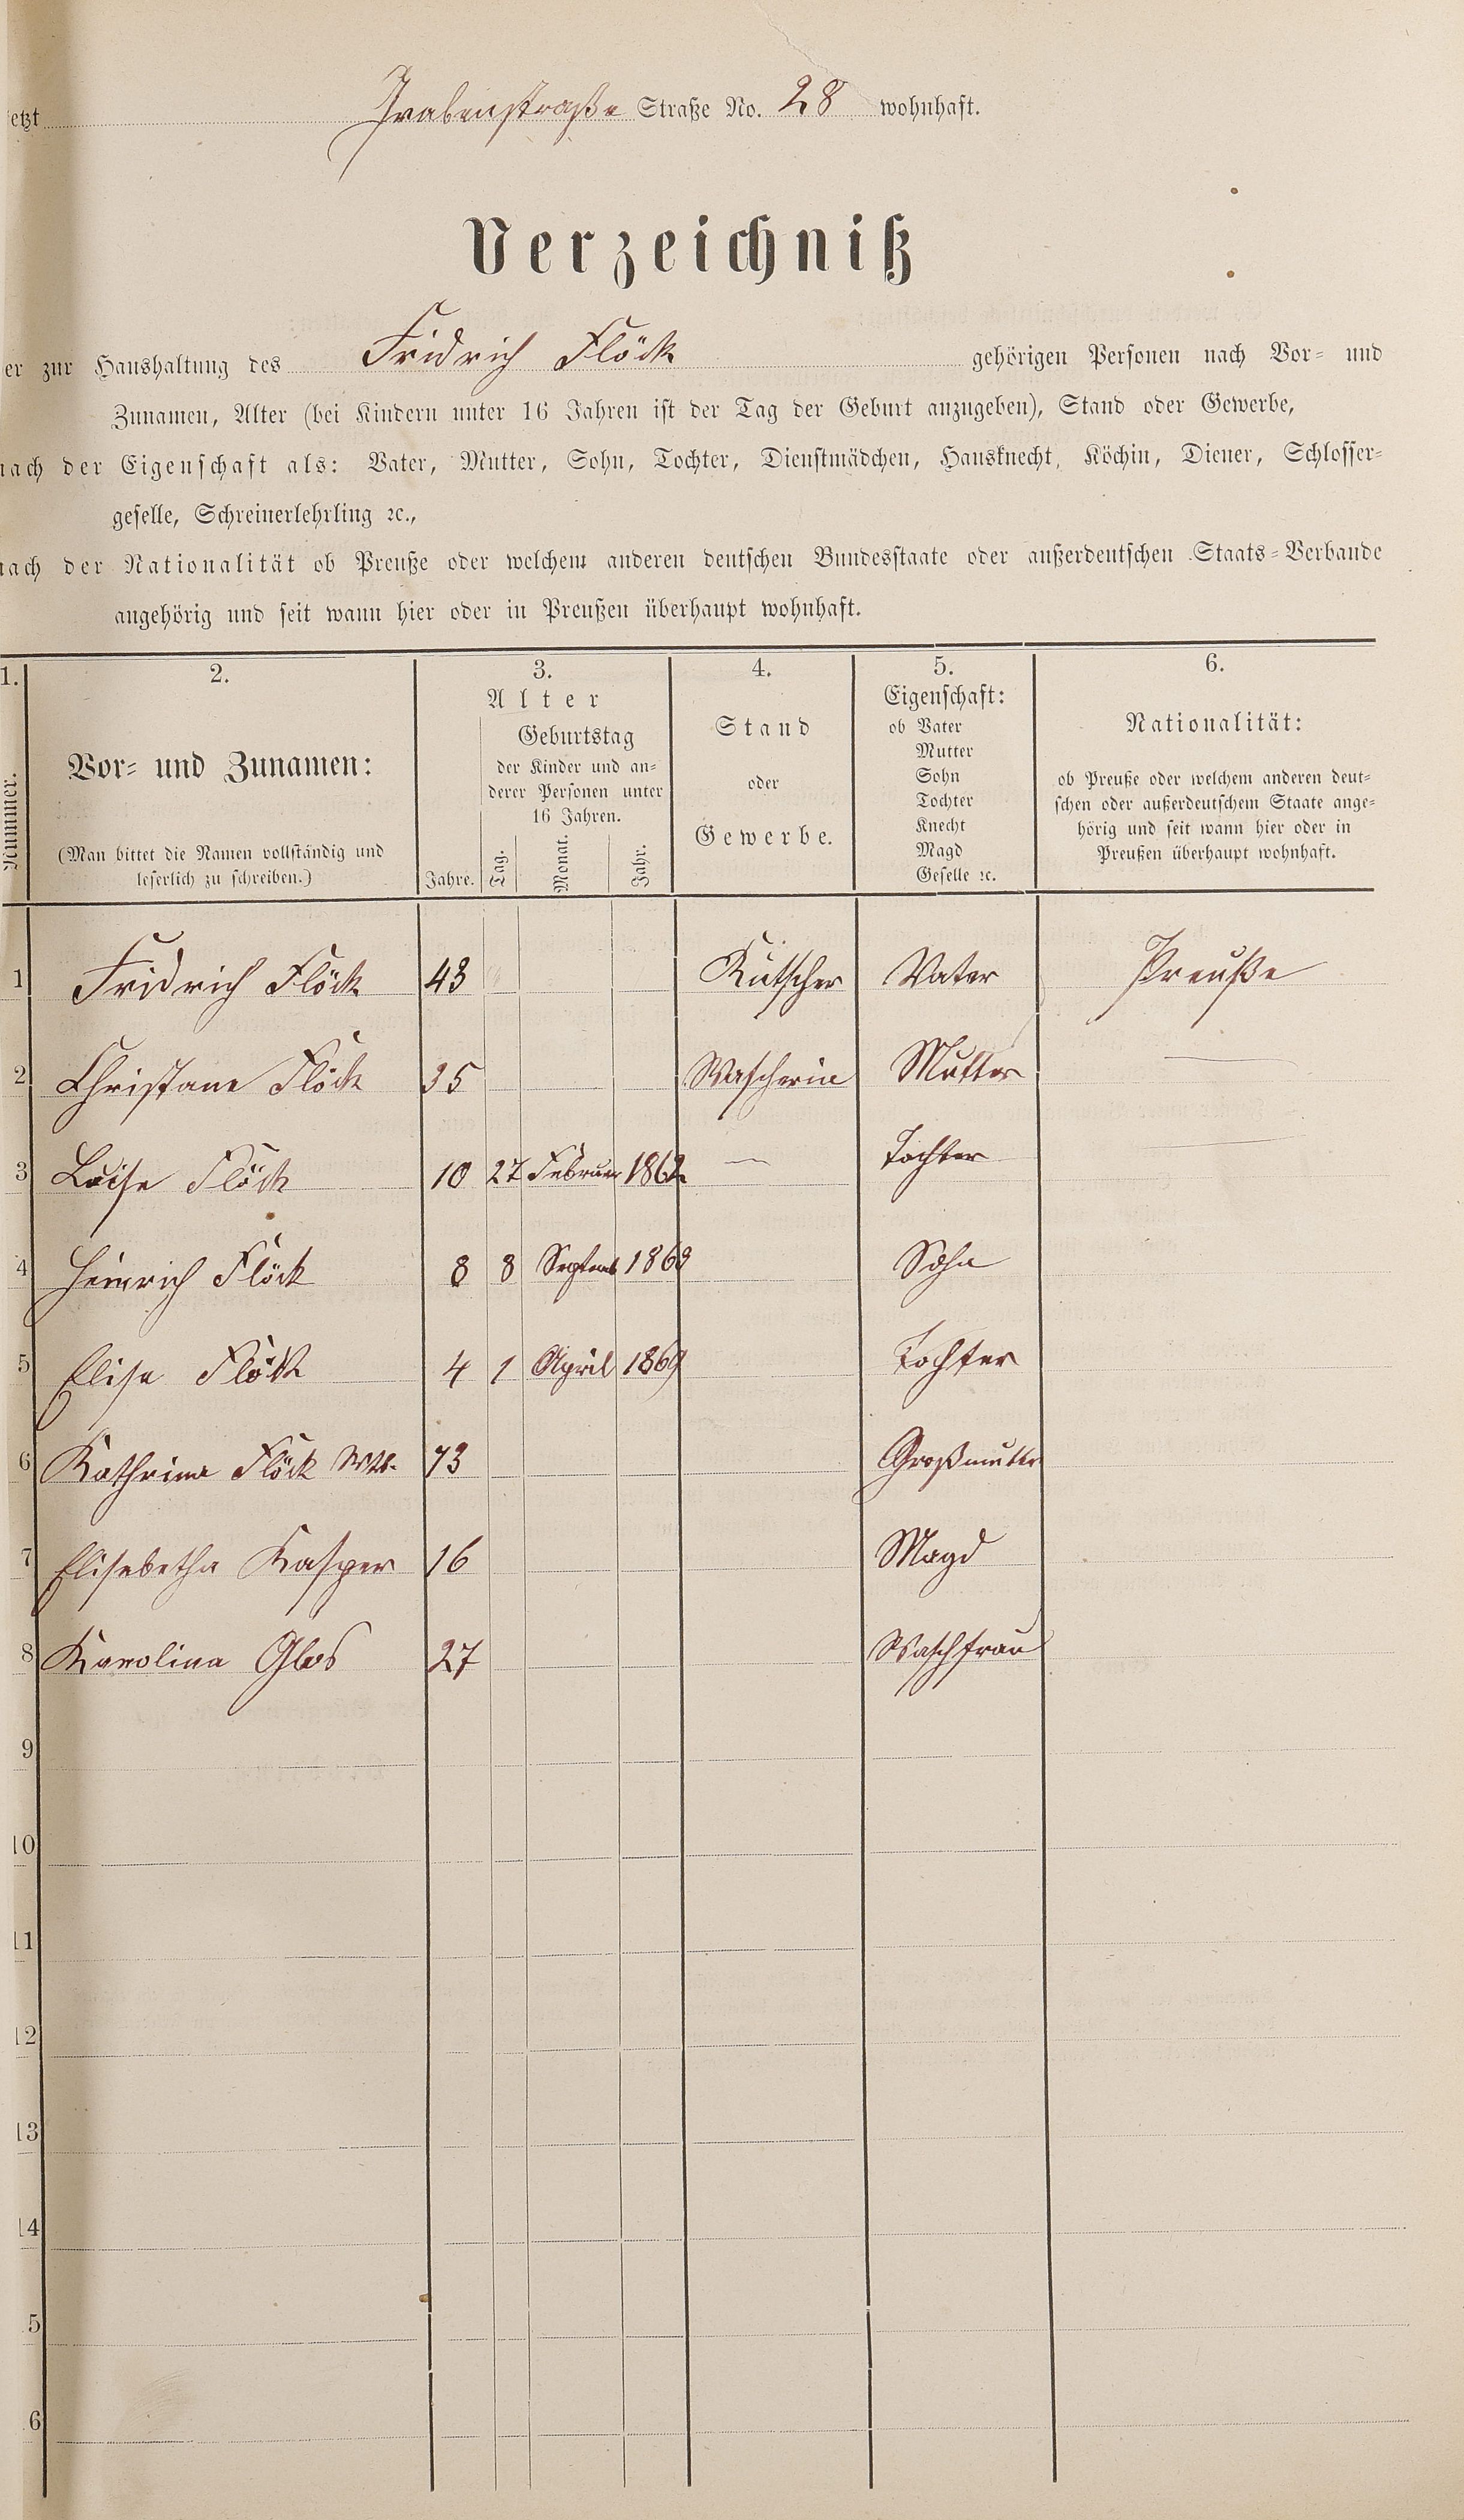 etzt Grabenstraße Straße No. 28 wohnhaft.
Verzeichniß
er zur Haushaltung des Fridrich Flöck gehörigen Personen nach Vor- und
Zunamen, Alter (bei Kindern unter 16 Jahren ist der Tag der Geburt anzugeben), Stand oder Gewerbe,
nach der Eigenschaft als: Vater, Mutter, Sohn, Tochter, Dienstmädchen, Hausknecht, Köchin, Diener, Schlosser-
geselle, Schreinerlehrling ꝛc.,
nach der Nationalität ob Preuße oder welchem anderen deutschen Bundesstaate oder außerdeutschen Staats-Verbande
angehörig und seit wann hier oder in Preußen überhaupt wohnhaft.
1. 2. 3. 4. 5. 6.
Nummer.
Vor- und Zunamen:
(Man bittet die Namen vollständig und
leserlich zu schreiben.)
Alter
Jahre.
Geburtstag
der Kinder und an-
derer Personen unter
16 Jahren.
Tag. Monat. Jahr.
Stand
oder
Gewerbe.
Eigenschaft:
ob Vater
Mutter
Sohn
Tochter
Knecht
Magd
Geselle ꝛc.
Nationalität:
ob Preuße oder welchem anderen deut-
schen oder außerdeutschem Staate ange-
hörig und seit wann hier oder in
Preußen überhaupt wohnhaft.
1 Fridrich Flöck 43 Kutscher Vater Preuße
2 Christane Flöck 35 Wascherin Mutter —
3 Luise Flöck 10 27 Februar 1862 — Tochter —
4 Heinrich Flöck 8 8 Septemb 186 Sohn
5 Elise Flöck 4 1 April 1869 Tochter
6 Kathrina Flöck Wtb. 73 Großmutter
7 Elisabetha Kasper 16 Magd
8 Karolina Glos 27 Waschfrau
9
10
11
12
13
14
5
6